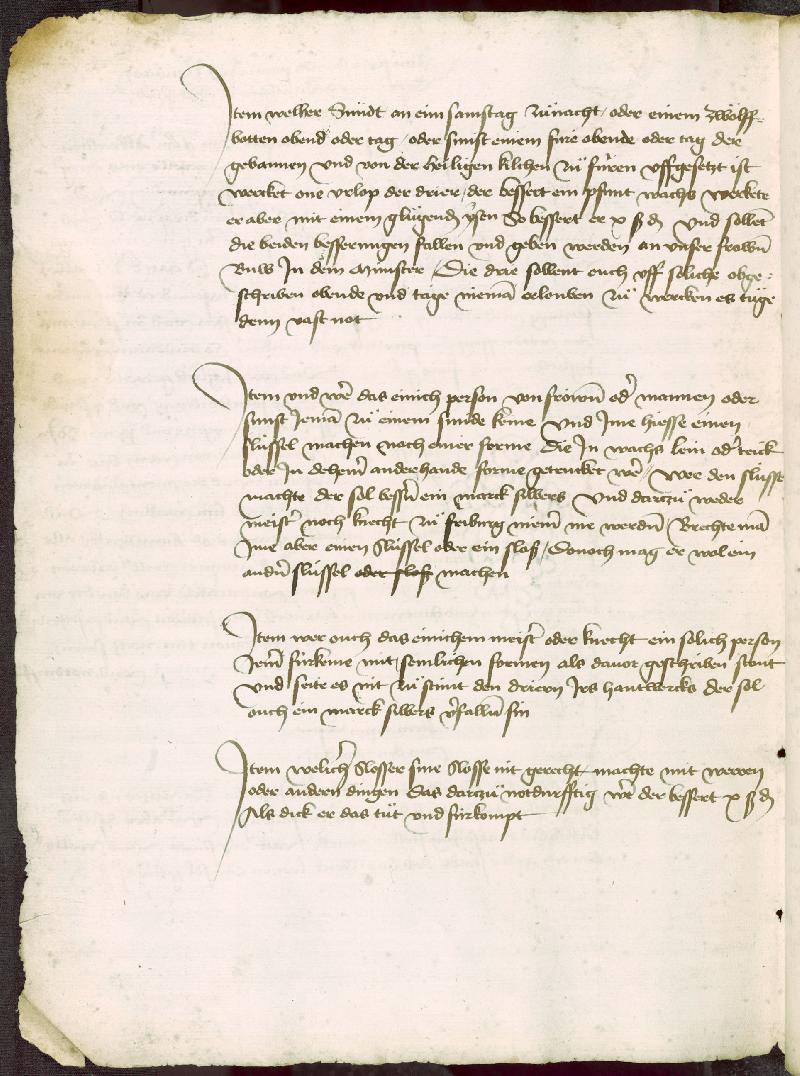 Item welher Smidt an eim samstag zů nacht / oder einem zwölff-
botten obend oder tag / oder sunst einem fire obende oder tag der
gebannen vnd von der heiligen kilchen zů firen vffgesetzt ist
wercket one vrlop der drier / der bessert ein pfunt wachs werckete
er aber mit einem glügenden ysen So bessert er x ß d vnd sollent
die beiden besserungen fallen vnd geben werden an vnser frowen
Buw In dem Munster / Die drie sollent ouch vff soliche obge-
schriben obende vnd tage niemā erlouben zů wercken es tüge
denn vast not
Item vnd wer das einich person von frowen oder mannen oder
sunst Jemā zů einem smide keme vnd Ime hiesse einen
slüssel machen noch einer forme die In wachs lein oder teick
oder In deheiner anderehande forme getrucket wer / wer den slüssel
machte der sol bessern ein marck silbers vnd darzů weder
meister noch knecht zů friburg niemer me werden / Brechte mā
Ime aber einen Slüssel oder ein sloß / Donoch mag er wol ein
andern slüssel oder sloß machen
Item wer ouch das einichem meister oder knecht ein solich person
Jemer fürkeme mit semlichen formen als dauor geschriben stont
vnd seite es nit zů stunt den drieren Irs hantwercks der sol
ouch ein marck silbers verfallen sin
Item welicher Slosser sine Slosse nit gerecht machte mit
oder andern dingen das darzů notdurfftig were der bessert x ß d
Als dick er das tůt vnd fürkompt